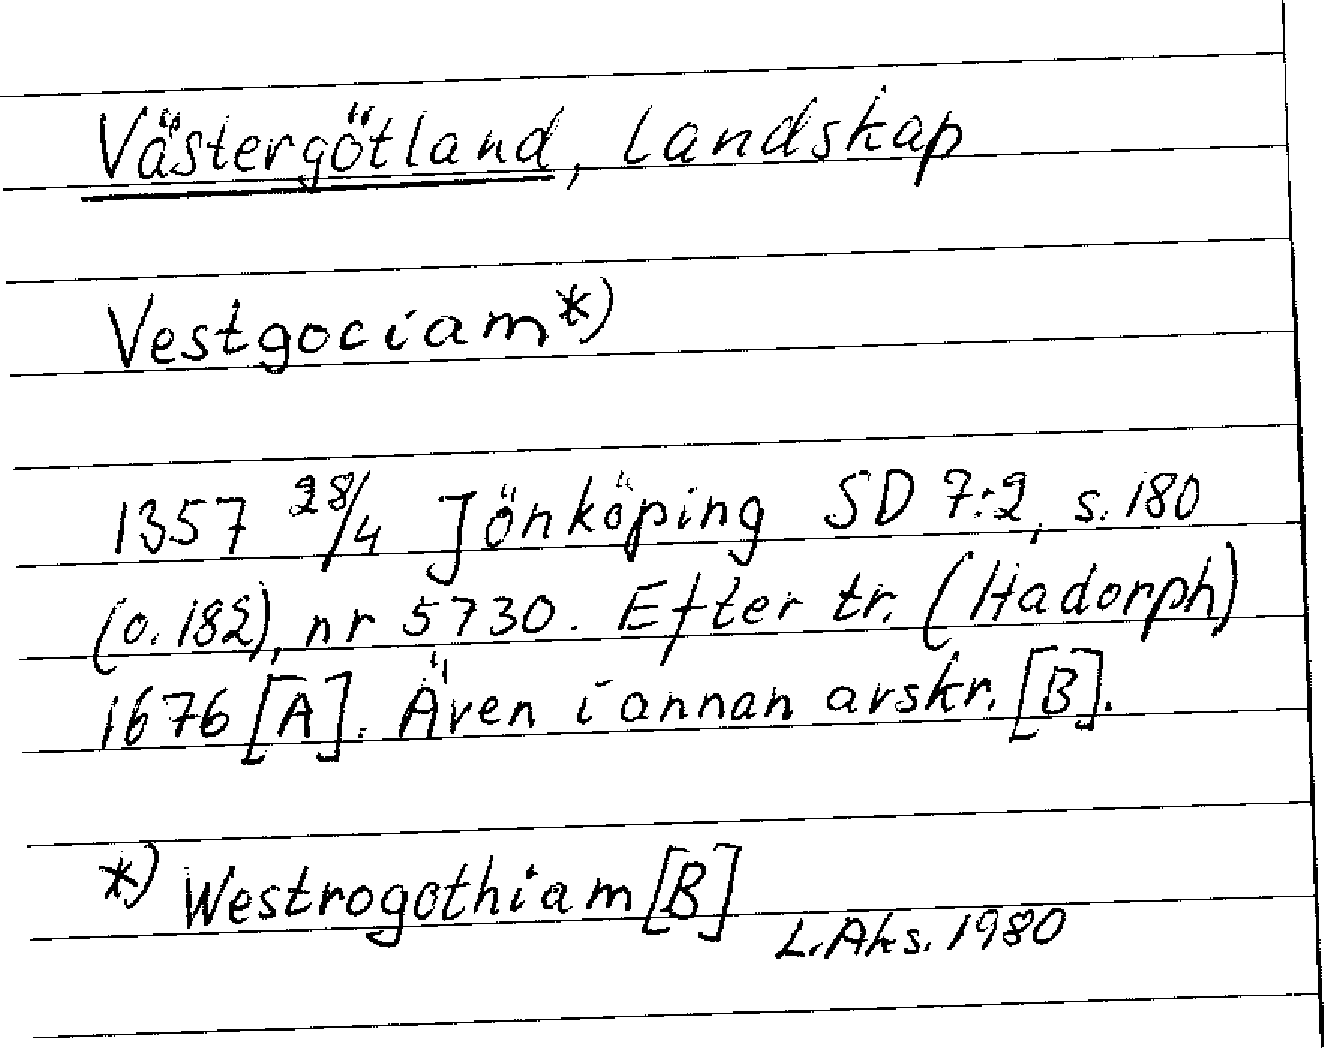 Västergötland, Landskap
Vestgociam*)
1357 28/4 Jönköping SD 7:2, s. 180
(o. 182), nr 5730. Efter tr. (Hadorph)
1676 [A]. Även i annan avskr. [B].
*) Westrogothiam [B]
L. Aks. 1980